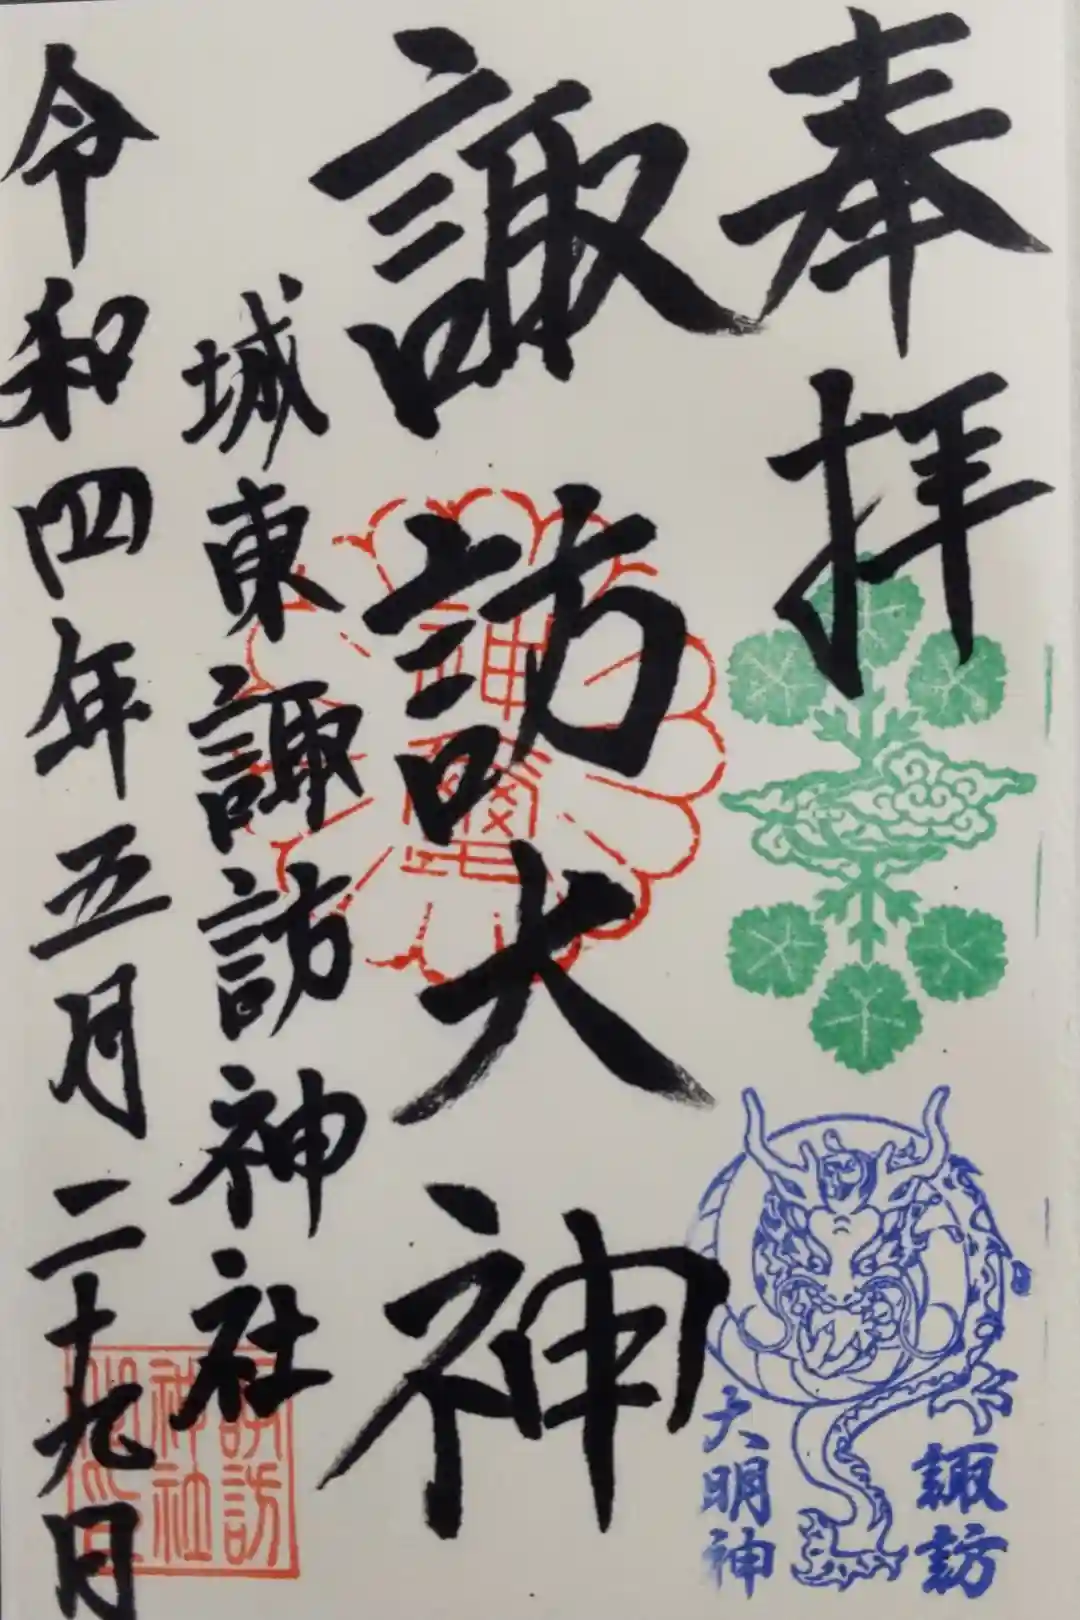 奉拝
諏訪大神
城東諏訪神社
令和四年五月二十九日
諏訪
大明神
諏訪
神社
神璽